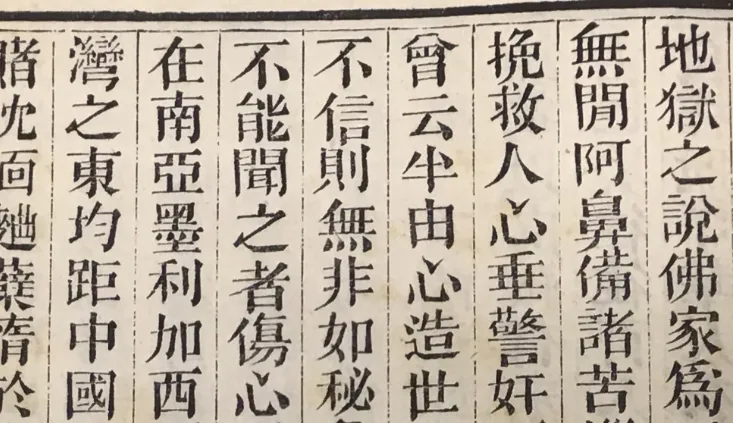 地獄之說佛家爲
無閒阿鼻備諸苦
挽救人心垂警奸
曾云由心造世
不信則無非如秘
不能聞之者傷心
在南亞墨利加西
灣之東均距中國
賭沈湎麯蘖惰於